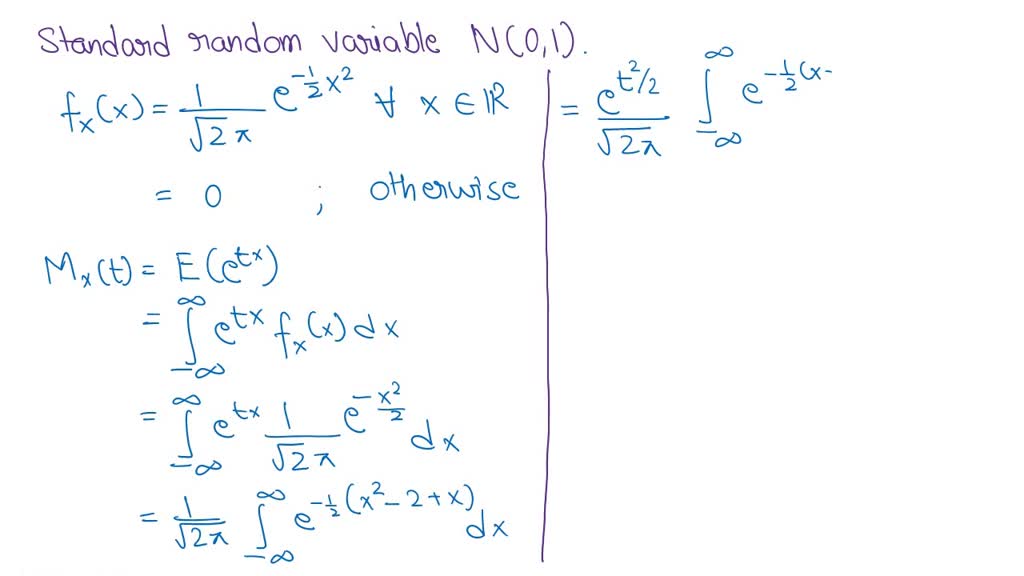 Standard random variable N(0,1).
fₓ(x) = 1/√2π e^(-1/2 x²) ∀ x ∈ ℝ
= 0 ; otherwise
Mₓ(t) = E(e^(tx))
= ∫_{-∞}^{∞} e^(tx) fₓ(x) dx
= ∫_{-∞}^{∞} e^(tx) 1/√2π e^(-x²/2) dx
= 1/√2π ∫_{-∞}^{∞} e^(-1/2 (x² - 2 + x)) dx
= e^(t²/2)/√2π ∫_{-∞}^{∞} e^(-1/2 (x-